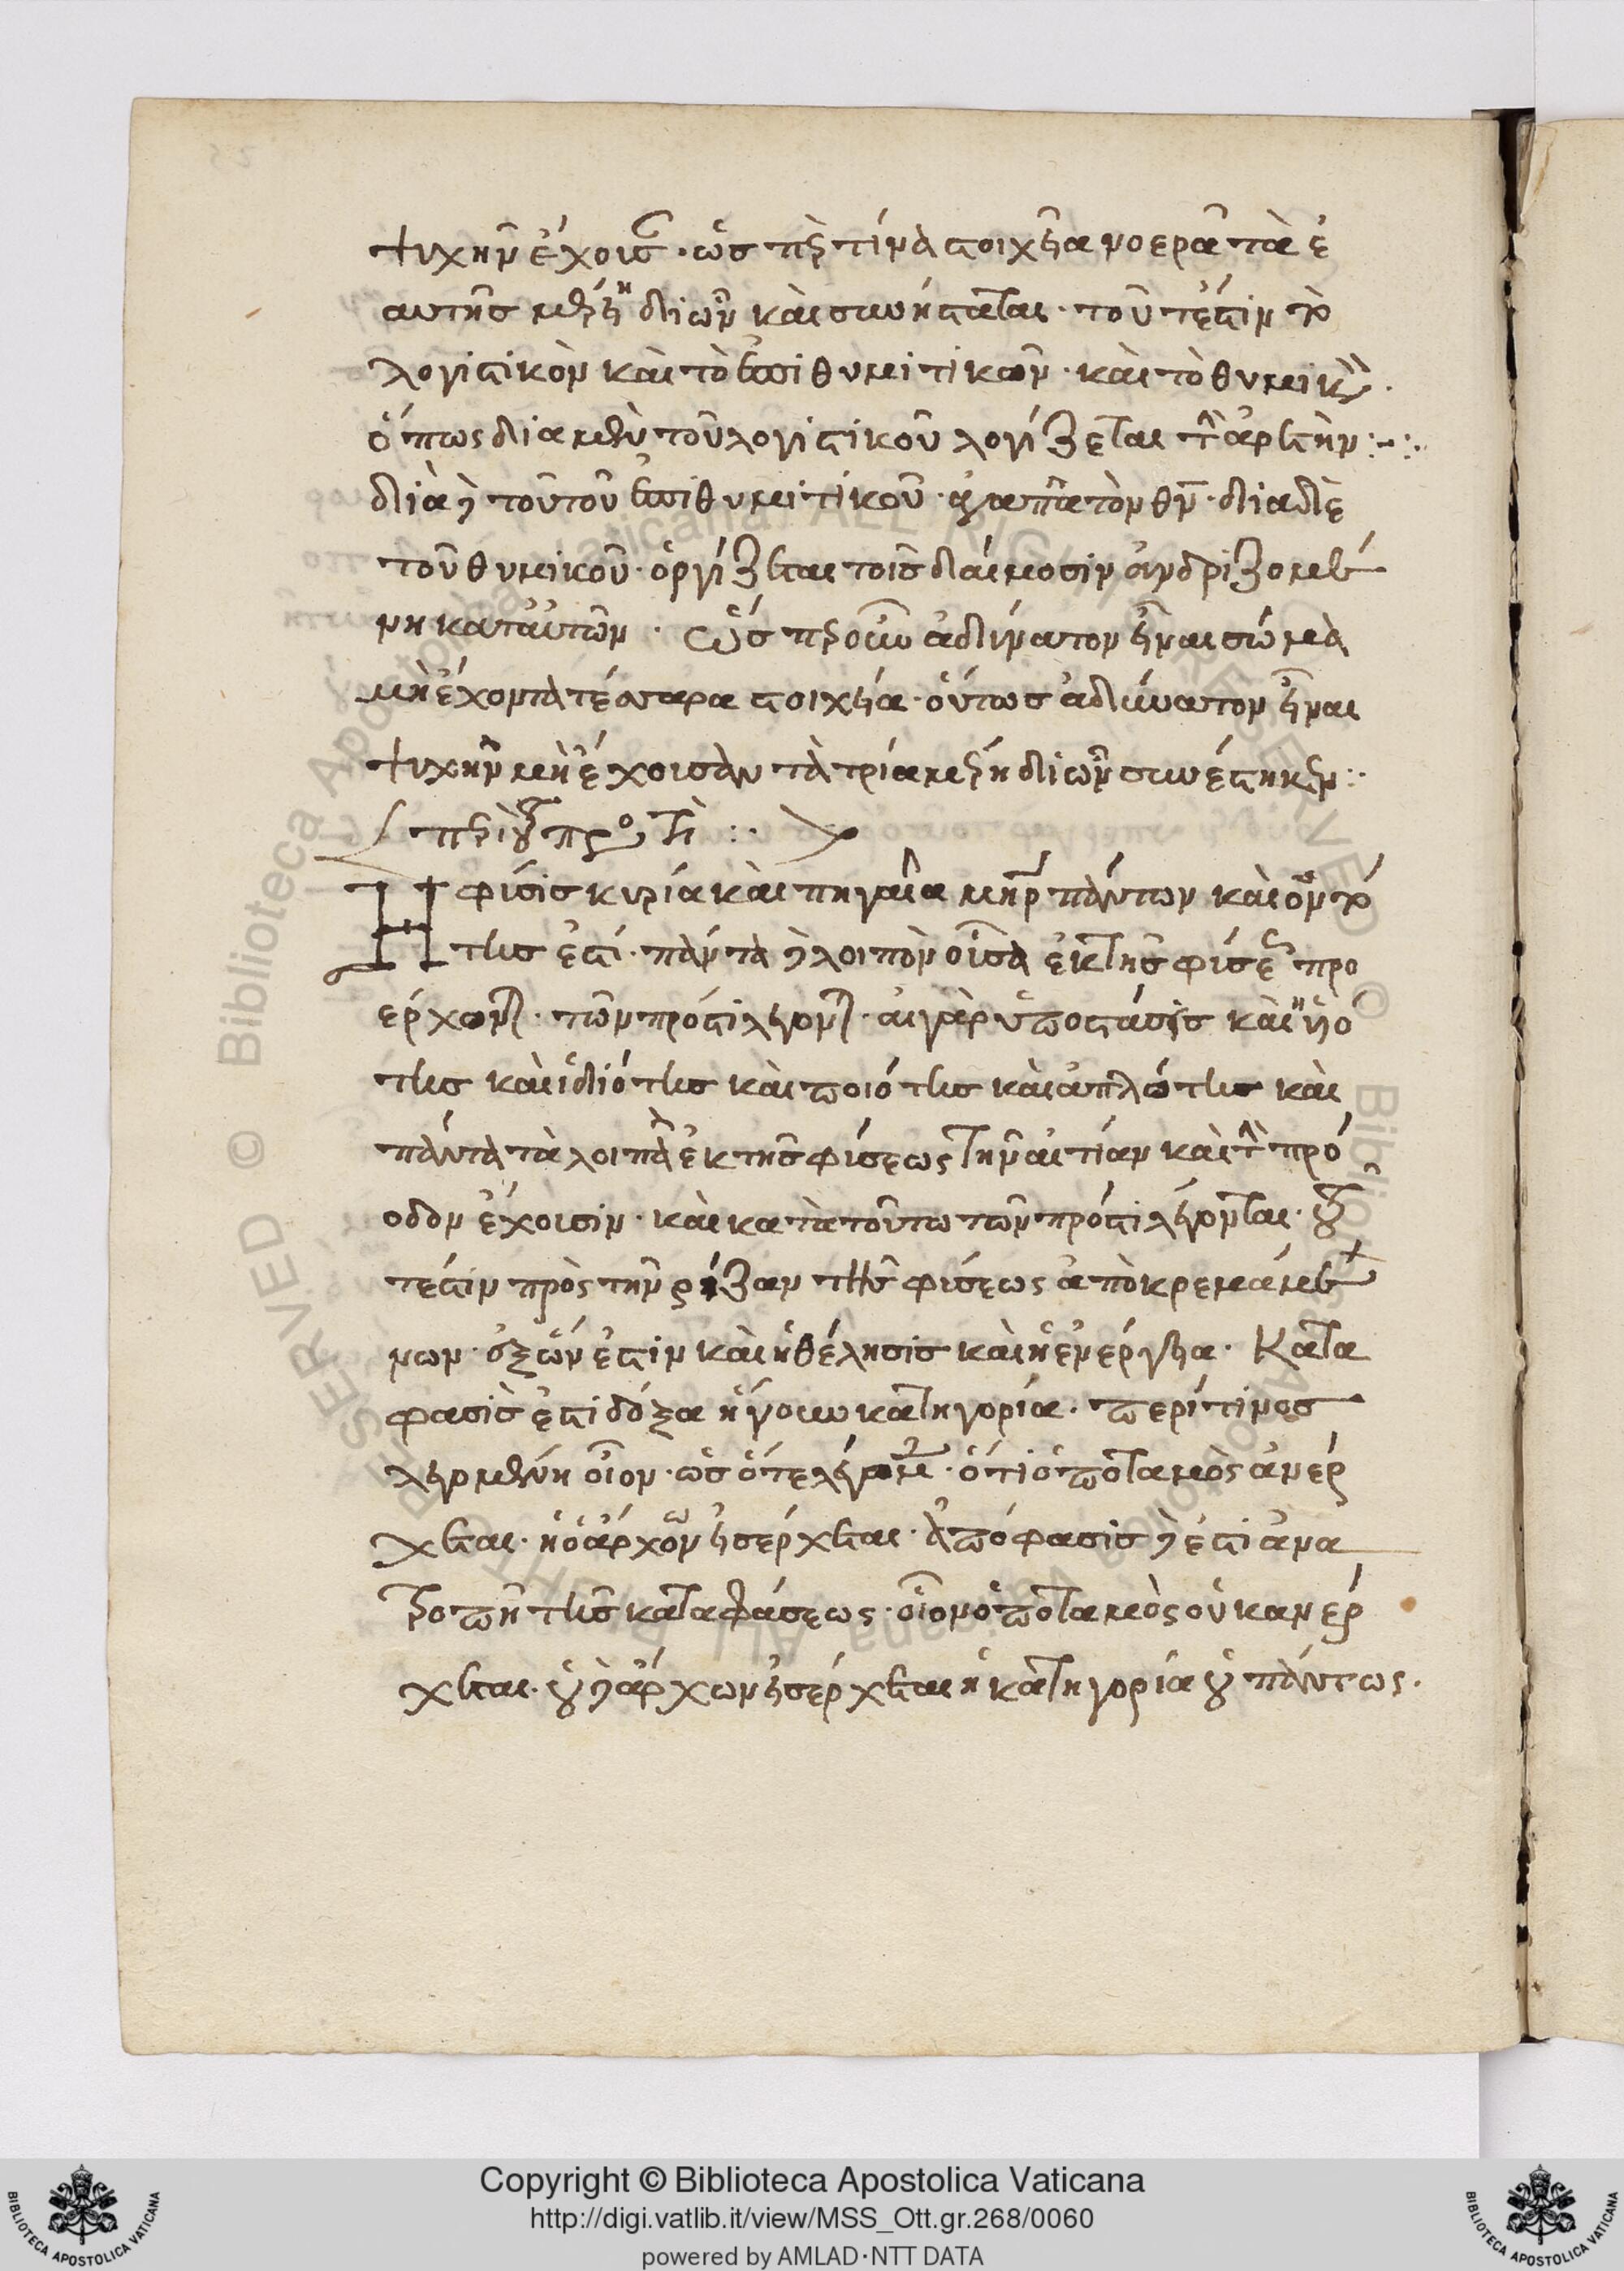 ψυχὴν ἔχοισ· ὥσπερ τινὰ στοιχεῖα νοερὰ τὰ ἑ
αυτῆς μέρη διῶν καὶ συνήσταται· τουτέστιν τὸ
λογιστικὸν καὶ τὸ ἐπιθυμιτικῶν· καὶ τὸ θυμικὸν·
ὅπως δια μὲν τοῦ λογιστικοῦ λογίζεται τὴν ἀρετὴν :-:·
διὰ δὲ τοῦ τοῦ ἐπιθυμιτικοῦ· ἀγαπᾶ τὸν θν· δια δὲ
τοῦ θυμικοῦ· ὀργίζεται τοῖς δαίμοσιν ἀνδριζομέ
νη κατ αὐτῶν· Ὥσπερ οὖν ἀδύνατον εἶναι σῶμα
μὴ ἔχοντα τέσσαρα στοιχεία· οὕτως ἀδύνατον εἶναι
ψυχὴν μὴ ἔχοισαν τὰ τρία μέρη διῶν συνέστηκεν :·
περὶ τοῦ πρός τι :·
Η φύσις κυρία καὶ πηγαία μηρ πάντων καὶ ὀντό
της ἐστί· πάντα δὲ λοιπὸν οἷσα ἐκ τῆς φύσεως προ
ερχων· τῶν πρόστι λέγον· αἱ γὰρ ὑποστάσεις καὶ
της καὶ ἰδιότης καὶ ποιότης καὶ ἁπλότης καὶ
πάντα τὰ λοιπὰ ἐκ τῆς φύσεως τὴν αἰτίαν καὶ τὴν πρό
οδον ἔχοισιν· καὶ κατὰ τοῦτω τῶν πρόστι λέγονται· τοῦ
τέστιν πρὸς τὴν ρίζαν τῆς φύσεως ἀποκρεμάμε
νων· ἐξ ὧν ἐστιν καὶ ἡ θέλησις καὶ ἡ ἐνέργεια· Κατα
φασίς ἐστι δόξα ἤγουν κατηγορία· περί τινος
λεγομένη οἷον· ὡς ὅτε λέγομεν· ὅτι ὁ ποταμὸς ἀνέρ
χεται· ἢ ὁ ἄρχων εἰσέρχεται· ἀπόφασις δέ ἐστι ἀνα
τροπὴ τῆς καταφάσεως· οἷον ὁ ποταμὸς οὐκ ανέρ
χεται· οὐδὲ ἄρχων εἰσέρχεται ἡ κατηγορία οὐ πάντως·
Copyright © Biblioteca Apostolica Vaticana
http://digi.vatlib.it/view/MSS_Ott.gr.268/0060
powered by AMLAD·NTT DATA